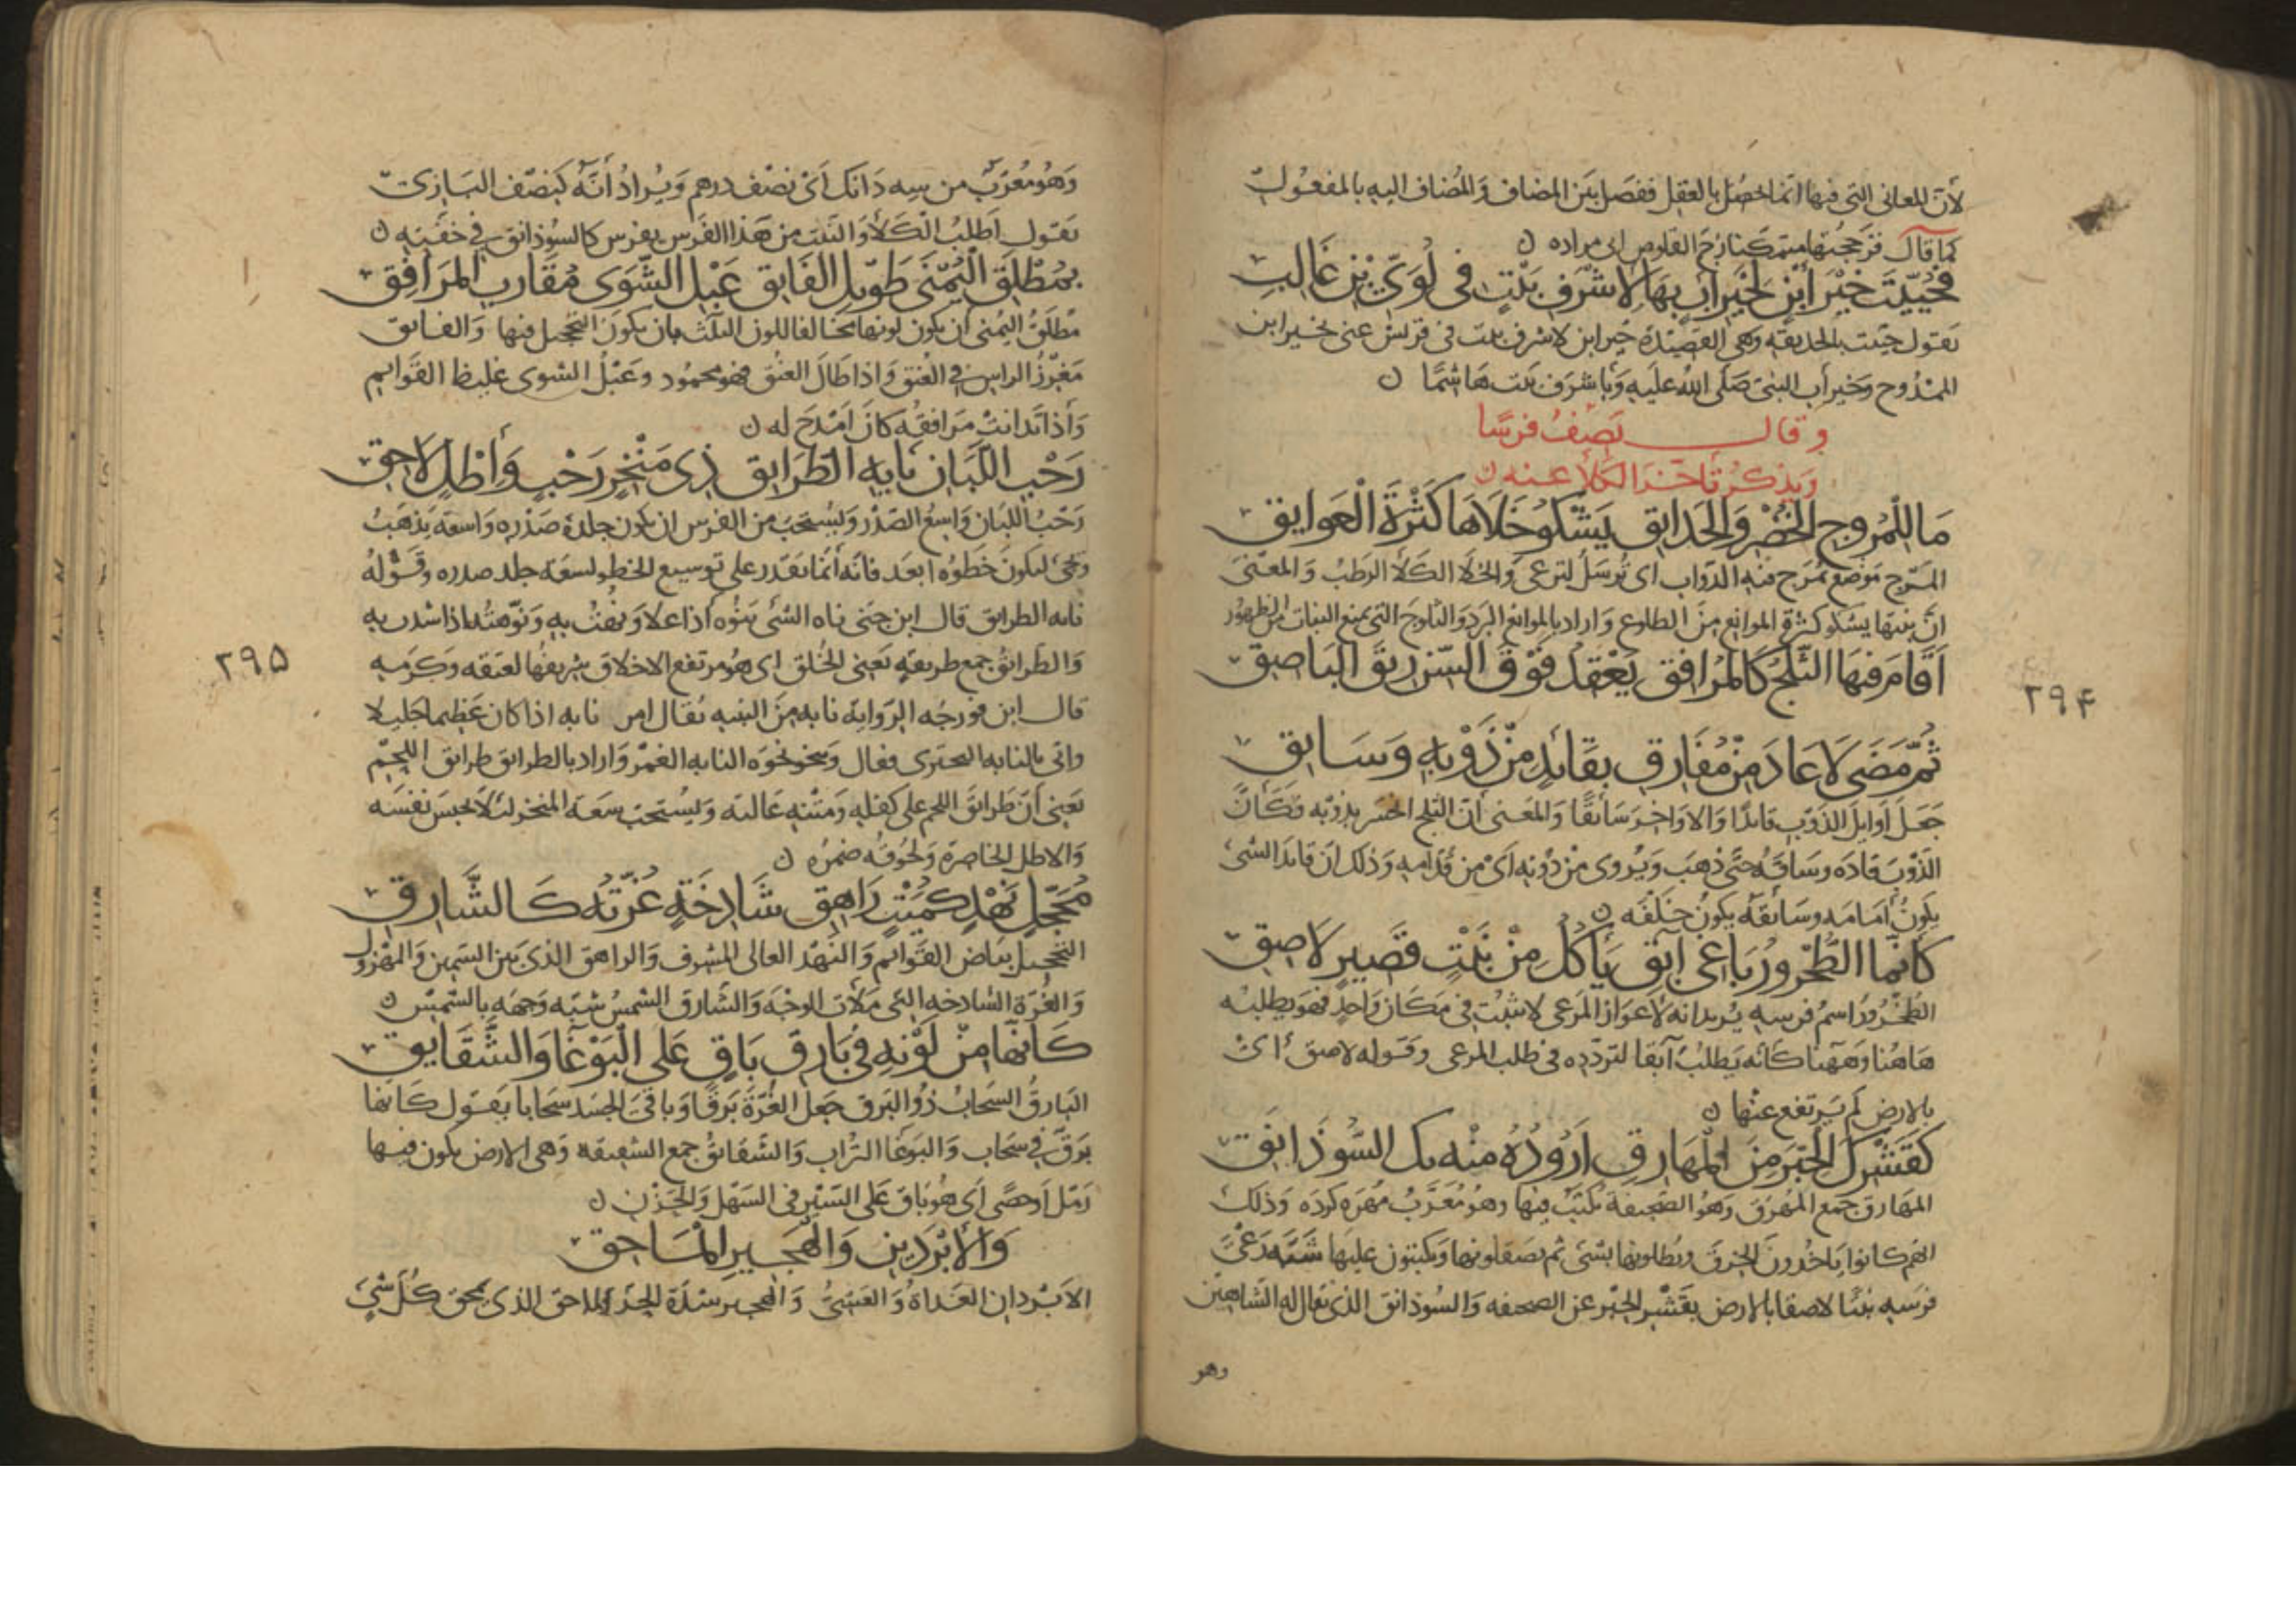 لأن المعاني التي فيها انما تحصل بالعقل ففصل بين المضاف والمضاف اليه بالمفعول
كما قال فزججتها متمكنا زج القلوص ابى مزاده ن
فَحُيِّيتَ خَيْرَ ابْنٍ لِخَيْرِ أَبٍ بِهَا لِأَشْرَفِ بَيْتٍ فِي لُؤَيِّ بْنِ غَالِبِ
يقول حييت بالحديقة وهي القصيدة خير ابن لاشرف بيت في قريش عنى بخير ابن
الممدوح وبخير أب النبي صلى الله عليه وباشرف بيت هاشما ن
وقال يصف فرسًا
ويذكر تأخر الكلأ عنه ن
مَا لِلْمُرُوجِ الْخُضْرِ وَالْحَدَايِقِ يَشْكُو خَلَاهَا كَثْرَةَ الْعَوَايِقِ
المرج موضع تمرج فيه الدواب اى ترسل لترعى والخلا الكلأ الرطب والمعنى
ان نبتها يشكو كثرة الموانع من الطلوع واراد بالموانع البرد والثلوج التي تمنع النبات من الظهور
أَقَامَ فِيهَا الثَّلْجُ كَالْمُرَافِقِ يَعْقِدُ فَوْقَ السِّنِّ رِيقَ الْبَاصِقِ
ثُمَّ مَضَى لَا عَادَ مِنْ مُفَارِقِ بِقَايِدٍ مِنْ ذَوْبِهِ وَسَايِقِ
جعل اوايل الذوب قايدًا والاواخر سائقًا والمعنى أن الثلج انحسر بذوبه فكأن
الذوب قاده وساقه حتى ذهب ويروى من دونه اى من قدامه وذلك ان قايد الشئ
يكون أمامه وسائقه يكون خلفه ن
كَأَنَّمَا الطُّخْرُورُ بَاغِي آبِقِ يَأْكُلُ مِنْ نَبْتٍ قَصِيرٍ لَاصِقِ
الطخرور اسم فرسه يريد انه لاعواز المرعى لا يثبت في مكان واحد فهو يطلبه
هاهنا وههنا كأنه يطلب آبقا لتردده في طلب المرعى وقوله لاصق اى
بالارض لم يرتفع عنها ن
كَقَشْرِكَ الْحِبْرَ مِنَ الْمَهَارِقِ أَرُودُهُ مِنْهُ بِكَالسُّوذَانِقِ
المهارق جمع المهرق وهو الصحيفة يكتب فيها وهو معرب مهره كرده وذلك
انهم كانوا ياخذون الخرق ويطلونها بشئ ثم يصقلونها ويكتبون عليها شبه رعى
فرسه نبتا لاصقا بالارض بقشر الحبر عن الصحيفه والسوذانق الذي يقال له الشاهين
وهو
۲۹۴
وهو معرب من سه دانك اى نصف درهم ويراد أنه كنصف البازى
يقول اطلب الكلأ والنبت من هذا الفرس بفرس كالسوذانق في خفته ن
بِمُطْلَقِ الْيُمْنَى طَوِيلِ الْفَايِقِ عَبْلِ الشَّوَى مُقَارِبِ الْمَرَافِقِ
مطلق اليمنى ان يكون لونها مخالفا للون الثلث بان يكون التحجيل فيها والفايق
مغرز الراس في العنق واذا طال العنق فهو محمود وعبل الشوى غليظ القوايم
واذا تدانت مرافقه كان امدح له ن
رَحْبِ اللَّبَانِ نَايِهِ الطَّرَايِقِ ذِي مَنْخِرٍ رَحْبٍ وَأَطْلٍ لَاحِقِ
رحب اللبان واسع الصدر ويستحب من الفرس ان يكون جلدة صدره واسعة يذهب
ويجئ ليكون خطوه ابعد فانه أنما يقدر على توسيع الخطو لسعة جلد صدره وقوله
نايه الطرايق قال ابن جنى ناه الشئ ينوه اذا علا ونهت به ونوهته اذا اشدت به
والطرائق جمع طريقة يعنى الخلق اى هو مرتفع الاخلاق شريفها لعتقه وكرمه
قال ابن فورجه الرواية نابه من النبه يقال امر نابه اذا كان عظيما جليلا
واتى بالنابه البحترى فقال وينحو نحوه النابه الغمر واراد بالطرايق طرايق اللحم
يعني أن طرايق اللحم على كفله ومتنه عالية ويستحب سعة المنخر لئلا يحبس نفسه
والاطل الخاصرة ولحوقه ضمره ن
مُحَجَّلٍ نَهْدٍ كُمَيْتٍ زَاهِقِ شَادِخَةٍ غُرَّتُهُ كَالشَّارِقِ
التحجيل بياض القوايم والنهد العالى المشرف والزاهق الذي بين السمين والمهزول
والغرة الشادخه التي ملأت الوجه والشارق الشمس شبه وجهه بالشمس ن
كَأَنَّهَا مِنْ لَوْنِهِ فِي بَارِقِ بَاقٍ عَلَى الْبَوْغَا وَالشَّقَايِقِ
البارق السحاب ذو البرق جعل الغرة برقا وباقى الجسد سحابا يقول كانها
برق في سحاب والبوغا التراب والشقائق جمع الشقيقة وهى الارض يكون فيها
رمل او حصى اى هو باق على السير في السهل والحزن ن
وَالْأَبْرَدَيْنِ وَالْهَجِيرِ الْمَاحِقِ
الابردان الغداة والعشى والهجير شدة الحر والماحق الذي يمحق كل شئ
۲۹۵